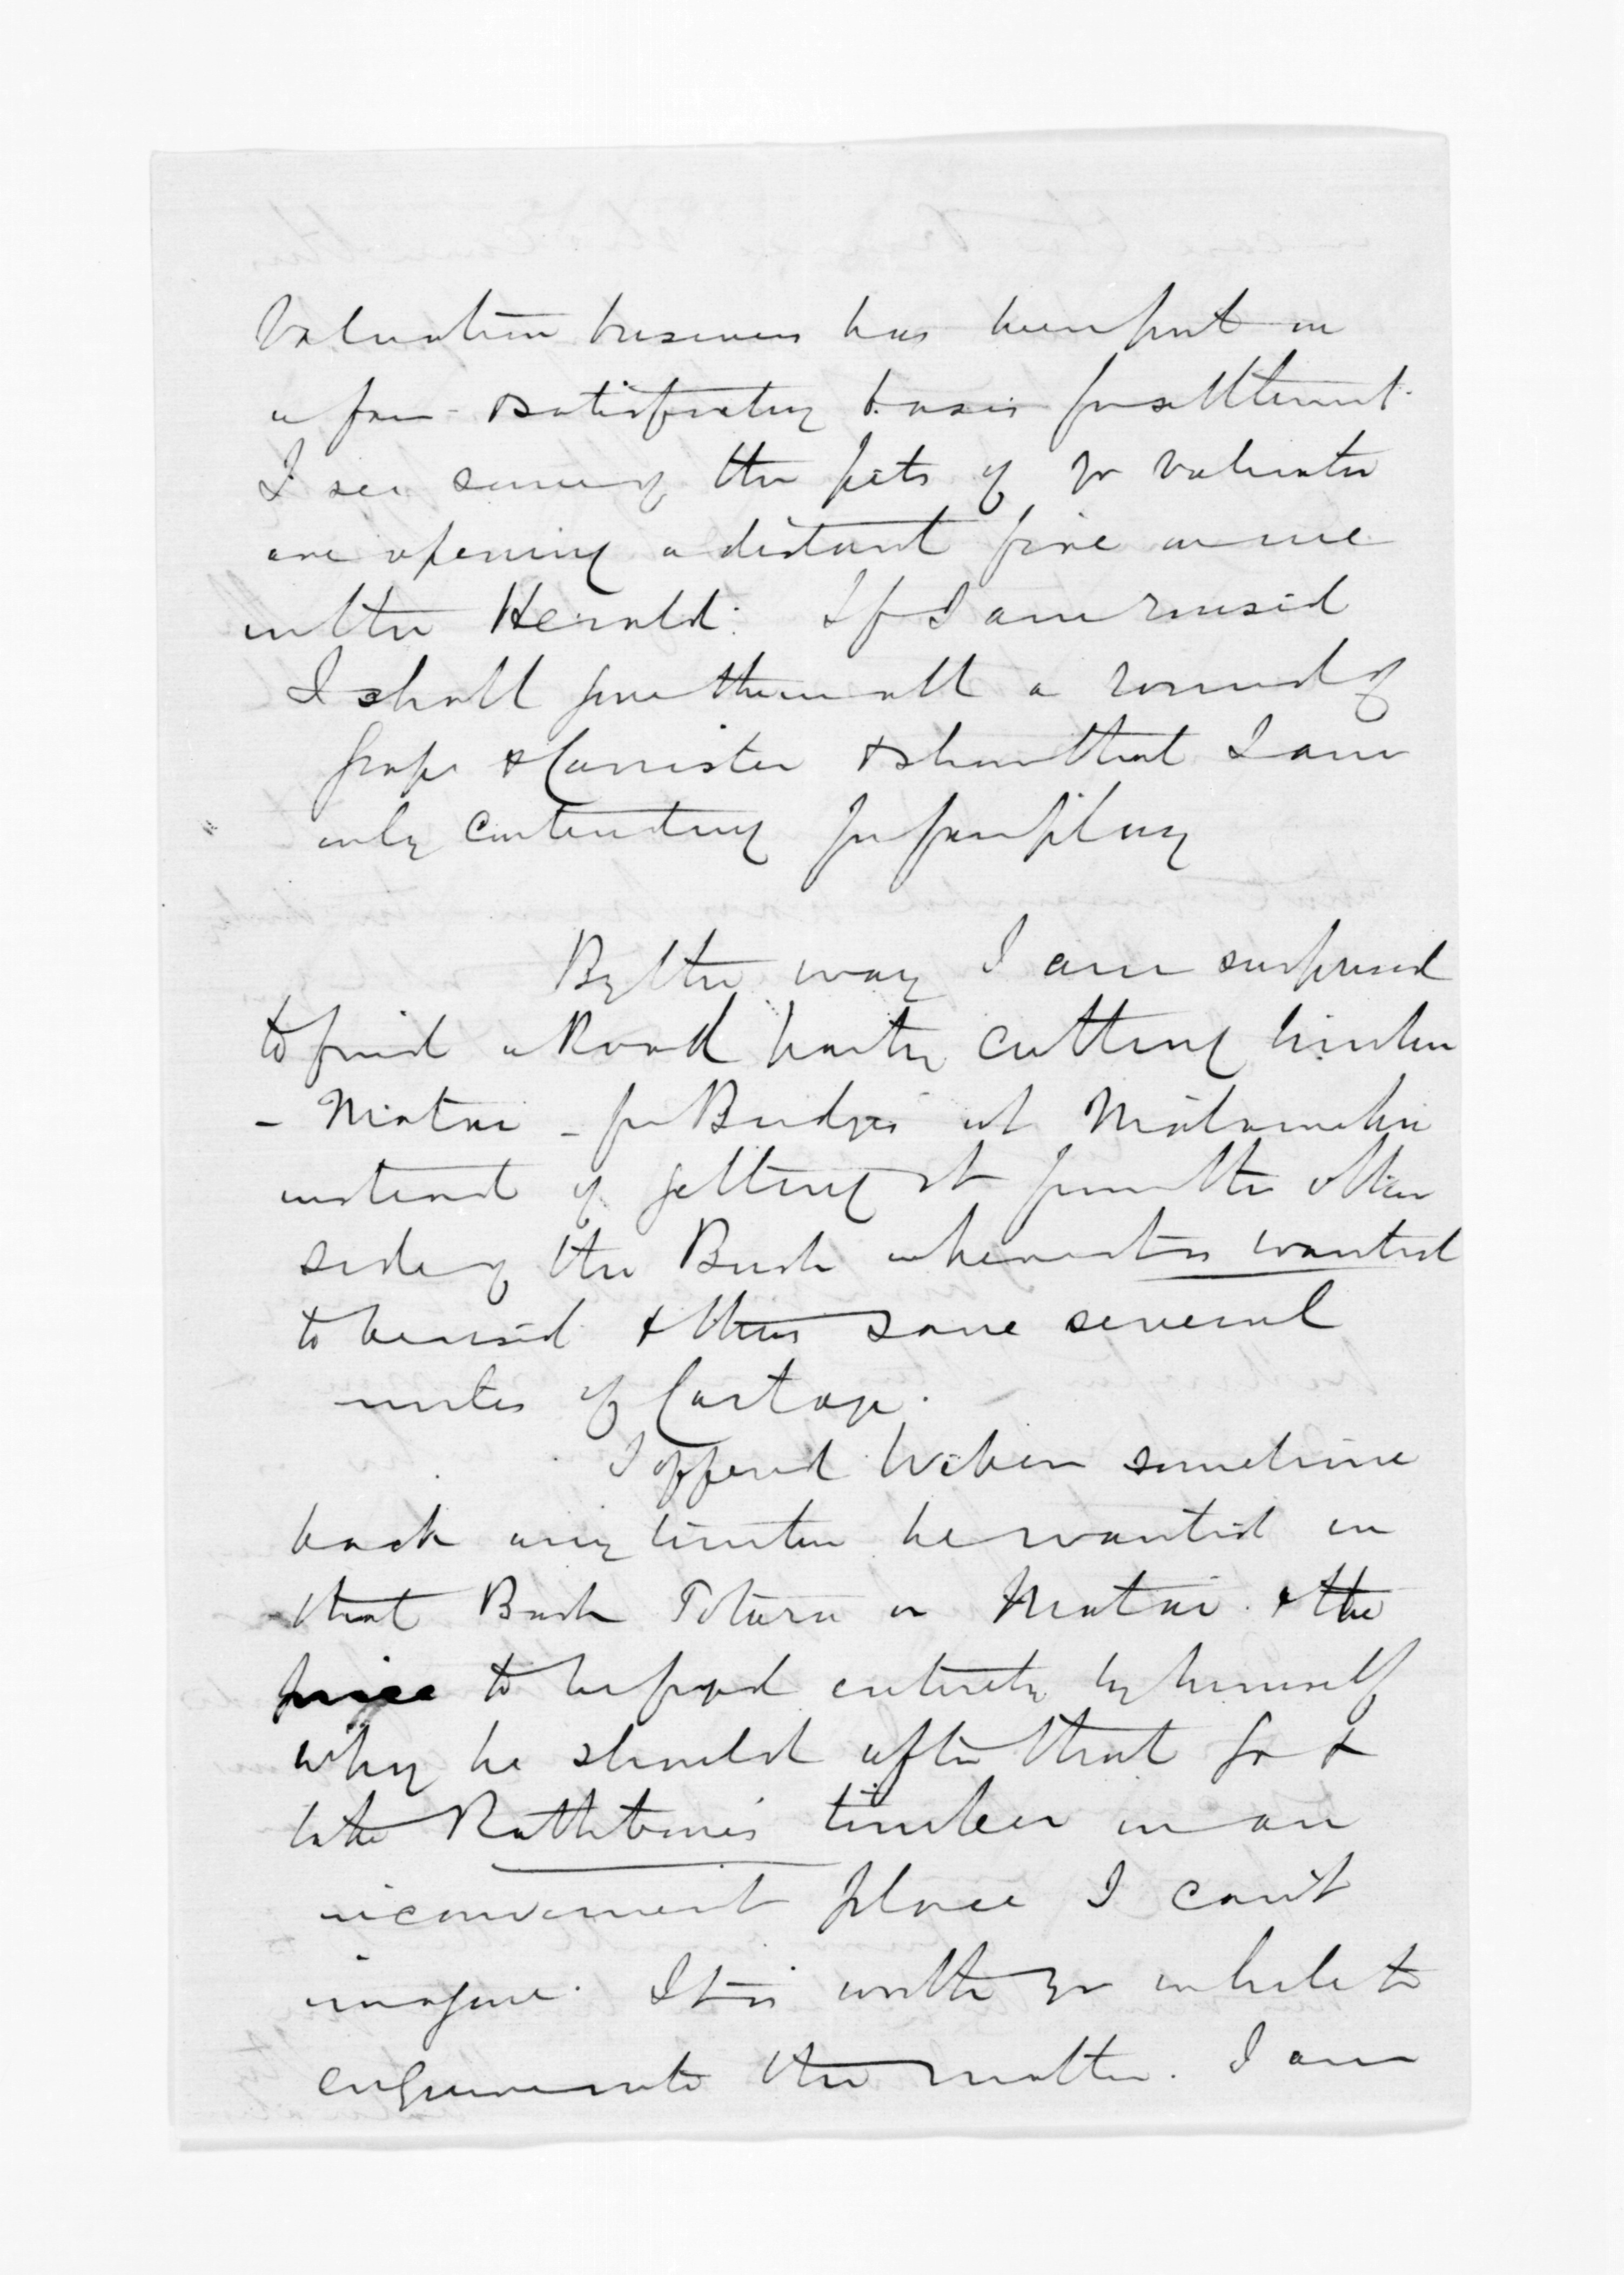 Valuation business has been put on
a fair & satisfactory basis for settlement.
I see some of the pets of yr valuator
are opening a distant fire on me
in the Herald. If I am roused
I shall give them all a round of
grape & Cannister & show that I am
only contending for fair play
By the way I am surprised
to find a Road party cutting timber
- Matai - for Bridges at Matamahu
instead of getting it from the other
side of the Bush where it is wanted
to be used & thus save several
miles of Cartage.
I offered Weber sometime
back any timber he wanted in
that Bush Totara or Matai & the
price to be fixed entirely by himself
why he should after that go &
take Rathbone's timber in an
inconvenient place I can't
imagine. It is worth yr while to
enquire into the matter. I am